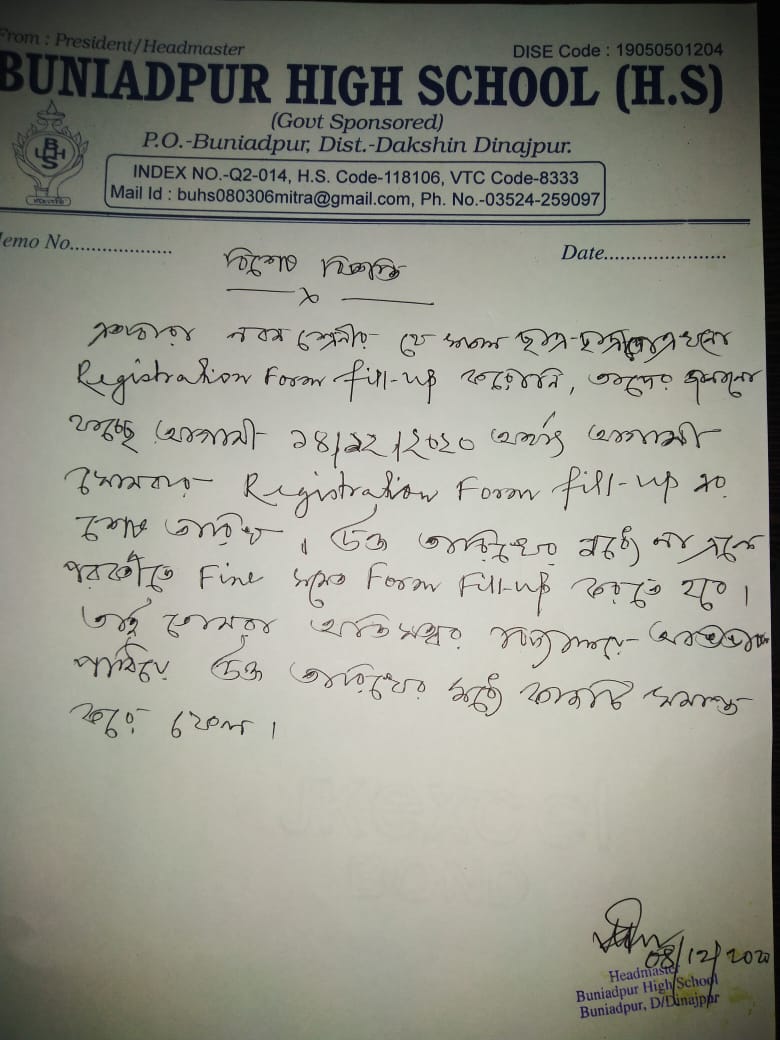 From : President/Headmaster
DISE Code : 19050501204
BUNIADPUR HIGH SCHOOL (H.S)
(Govt Sponsored)
P.O.-Buniadpur, Dist.-Dakshin Dinajpur.
INDEX NO.-Q2-014, H.S. Code-118106, VTC Code-8333
Mail Id : buhs080306mitra@gmail.com, Ph. No.-03524-259097
Memo No..................
Date......................
বিশেষ বিজ্ঞপ্তি
এতদ্বারা নবম শ্রেনীর যে সকল ছাত্র-ছাত্রী এখনো
Registration Form fill-up করোনি, তাদের জানানো
যাচ্ছে আগামী ১৪/১২/২০২০ অর্থাৎ আগামী
সোমবার Registration Form fill-up এর
শেষ তারিখ । উক্ত তারিখের মধ্যে না এলে
পরবর্তীতে Fine সমেত Form Fill-up করতে হবে ।
তাই তোমরা অতিসত্ত্বর বিদ্যালয়ে অভিভাবক
পাঠিয়ে উক্ত তারিখের মধ্যে কাজটি সমাপ্ত
করে ফেল ।
08/12/2020
Headmaster
Buniadpur High School
Buniadpur, D/Dinajpur